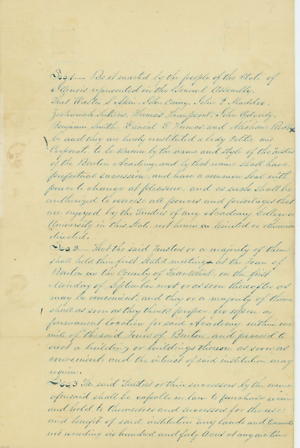 Sec 1 Be it enacted by the people of the State of
Illinois represented in the General Assembly
That Walter S Akin, John Ewing, John F Maddox,
Zachariah Thomas Thompson, John
Benjamin Smith, and Abraham
be and they are hereby constituted a body Politic and
Corporate to be known by the name and style of the Trustees
of the Benton Academy, and by that name shall have
perpetual succession, and have a common seal with
power to change at pleasure, and as such shall be
authorized to exercise all powers and privileges that
are enjoyed by the Trustees of any Academy College or
University in this State, not herein limited or otherwise
directed.
Sec 2 That the said Trustees or a majority of them
shall hold their first stated meeting at the Town of
Benton in the County of Franklin, on the first
Monday of September next or as soon thereafter as
may be convenient and they or a majority of them
shall as soon as they think proper fix upon a
permanent location for said Academy within one
mile of the said Town of Benton, and proceed to
erect a building or buildings thereon as soon as
convenient and the interest of said institution may
require.
Sec 3 The said Trustees or their successors by the name
aforesaid shall be capable in law to purchase receive
and hold to themselves and successors for the use
and benefit of said institution any lands and tenements
not exceeding one hundred and fifty Acres at any one time